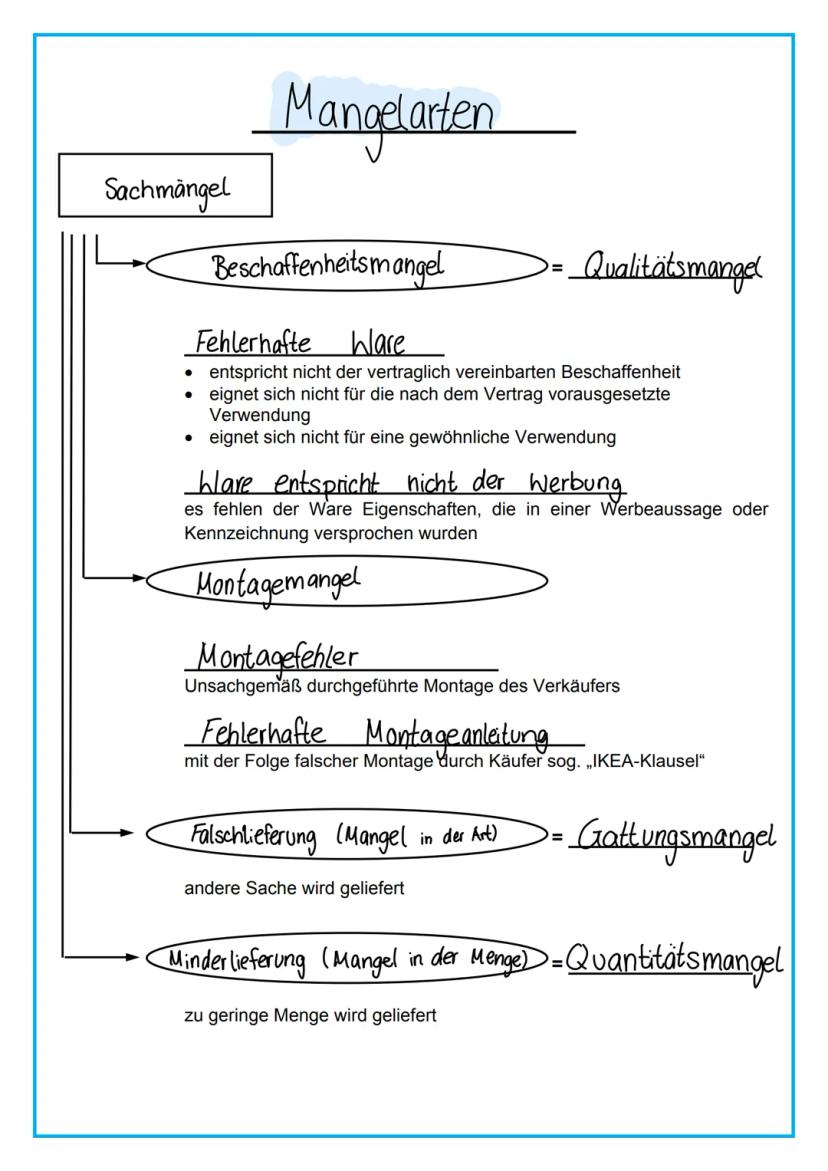 Mangelarten
Sachmängel
Beschaffenheitsmangel = Qualitätsmangel
Fehlerhafte Ware
• entspricht nicht der vertraglich vereinbarten Beschaffenheit
• eignet sich nicht für die nach dem Vertrag vorausgesetzte
Verwendung
• eignet sich nicht für eine gewöhnliche Verwendung
Ware entspricht nicht der Werbung
es fehlen der Ware Eigenschaften, die in einer Werbeaussage oder
Kennzeichnung versprochen wurden
Montagemangel
Montagefehler
Unsachgemäß durchgeführte Montage des Verkäufers
Fehlerhafte Montageanleitung
mit der Folge falscher Montage durch Käufer sog. „IKEA-Klausel“
Falschlieferung (Mangel in der Art) = Gattungsmangel
andere Sache wird geliefert
Minderlieferung (Mangel in der Menge) = Quantitätsmangel
zu geringe Menge wird geliefert